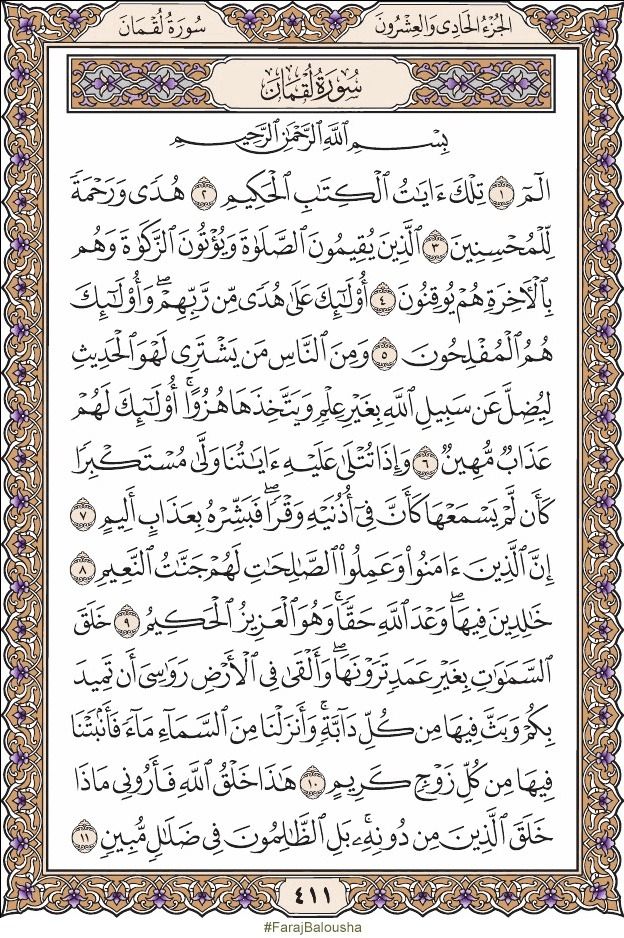 الجُزْءُ الحَادِى وَالعِشْرُونَ
سُورَةُ لُقْمَانَ
سُورَةُ لُقْمَانَ
بِسْمِ ٱللَّهِ ٱلرَّحْمَٰنِ ٱلرَّحِيمِ
الٓمٓ ١ تِلْكَ ءَايَٰتُ ٱلْكِتَٰبِ ٱلْحَكِيمِ ٢ هُدًى وَرَحْمَةً
لِّلْمُحْسِنِينَ ٣ ٱلَّذِينَ يُقِيمُونَ ٱلصَّلَوٰةَ وَيُؤْتُونَ ٱلزَّكَوٰةَ وَهُم
بِٱلْأَخِرَةِ هُمْ يُوقِنُونَ ٤ أُو۟لَٰٓئِكَ عَلَىٰ هُدًى مِّن رَّبِّهِمْ ۖ وَأُو۟لَٰٓئِكَ
هُمُ ٱلْمُفْلِحُونَ ٥ وَمِنَ ٱلنَّاسِ مَن يَشْتَرِى لَهْوَ ٱلْحَدِيثِ
لِيُضِلَّ عَن سَبِيلِ ٱللَّهِ بِغَيْرِ عِلْمٍ وَيَتَّخِذَهَا هُزُوًا ۚ أُو۟لَٰٓئِكَ لَهُمْ
عَذَابٌ مُّهِينٌ ٦ وَإِذَا تُتْلَىٰ عَلَيْهِ ءَايَٰتُنَا وَلَّىٰ مُسْتَكْبِرًا
كَأَن لَّمْ يَسْمَعْهَا كَأَنَّ فِىٓ أُذُنَيْهِ وَقْرًا ۖ فَبَشِّرْهُ بِعَذَابٍ أَلِيمٍ ٧
إِنَّ ٱلَّذِينَ ءَامَنُوا۟ وَعَمِلُوا۟ ٱلصَّٰلِحَٰتِ لَهُمْ جَنَّٰتُ ٱلنَّعِيمِ ٨
خَٰلِدِينَ فِيهَا ۖ وَعْدَ ٱللَّهِ حَقًّا ۚ وَهُوَ ٱلْعَزِيزُ ٱلْحَكِيمُ ٩ خَلَقَ
ٱلسَّمَٰوَٰتِ بِغَيْرِ عَمَدٍ تَرَوْنَهَا ۖ وَأَلْقَىٰ فِى ٱلْأَرْضِ رَوَٰسِىَ أَن تَمِيدَ
بِكُمْ وَبَثَّ فِيهَا مِن كُلِّ دَآبَّةٍ ۚ وَأَنزَلْنَا مِنَ ٱلسَّمَآءِ مَآءً فَأَنۢبَتْنَا
فِيهَا مِن كُلِّ زَوْجٍ كَرِيمٍ ١٠ هَٰذَا خَلْقُ ٱللَّهِ فَأَرُونِى مَاذَا
خَلَقَ ٱلَّذِينَ مِن دُونِهِۦ ۚ بَلِ ٱلظَّٰلِمُونَ فِى ضَلَٰلٍ مُّبِينٍ ١١
٤١١
#FarajBalousha